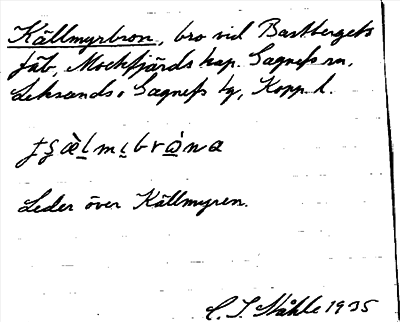 Källmyrbron, bro vid Bastbergets
fäb, Mockfjärds kap. Gagnefs sn,
Leksands o Gagnefs tg, Kopp. l.
Leder över Källmyren.
C. I. Ståhle 1935